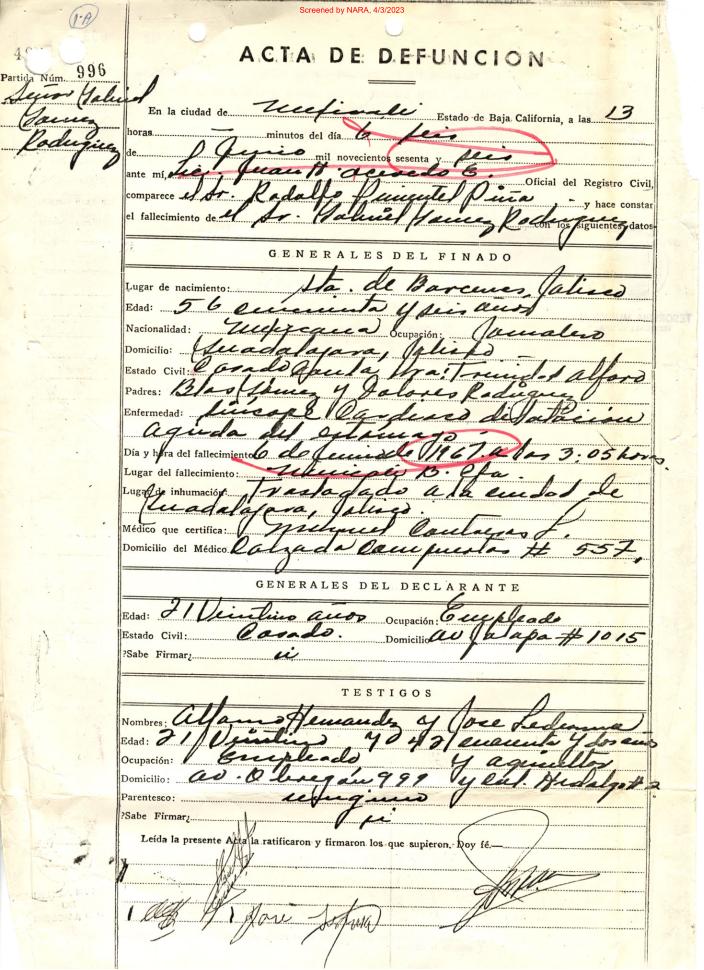 Screened by NARA, 4/3/2023
1-A
ACTA DE DEFUNCION
Partida Núm. 996
Señor Gabriel
Gomez
Rodriguez
En la ciudad de Mexicali Estado de Baja California, a las 13
horas — minutos del día 6 seis
de Junio mil novecientos sesenta y seis
ante mí, Lic. Juan H. Acevedo C. Oficial del Registro Civil,
comparece el Sr. Rodolfo Pimentel Piña y hace constar
el fallecimiento de el Sr. Gabriel Gomez Rodriguez con los siguientes datos
GENERALES DEL FINADO
Lugar de nacimiento: Sta. de Barcenes, Jalisco
Edad: 56 cincuenta y seis años
Nacionalidad: Mexicana Ocupación: Jornalero
Domicilio: Guadalajara, Jalisco
Estado Civil: Casado Sra: Trinidad Alfaro
Padres: Blas Gomez y Dolores Rodriguez
Enfermedad: Sincope Cardiaco dilatacion
aguda del estomago
Día y hora del fallecimiento 6 de Junio de 1967 a las 3:05 horas.
Lugar del fallecimiento: Mexicali B. Cfa.
Lugar de inhumación: Trasladado a la ciudad de
Guadalajara, Jalisco.
Médico que certifica: Miguel Contreras F.
Domicilio del Médico: Calzada Compuertas # 557,
GENERALES DEL DECLARANTE
Edad: 21 Veintiun años Ocupación: Empleado
Estado Civil: Casado. Domicilio: av Jalapa # 1015
?Sabe Firmar¿ si
TESTIGOS
Nombres: Alfonso Hernandez y Jose Ledesma
Edad: 21 Veintiun y 042 cuarenta y dos años
Ocupación: Empleado y agricultor
Domicilio: av. Obregón 999 y Hidalgo # 2
Parentesco: ninguno
?Sabe Firmar¿ si
Leída la presente Acta la ratificaron y firmaron los que supieron. Doy fé.—
José